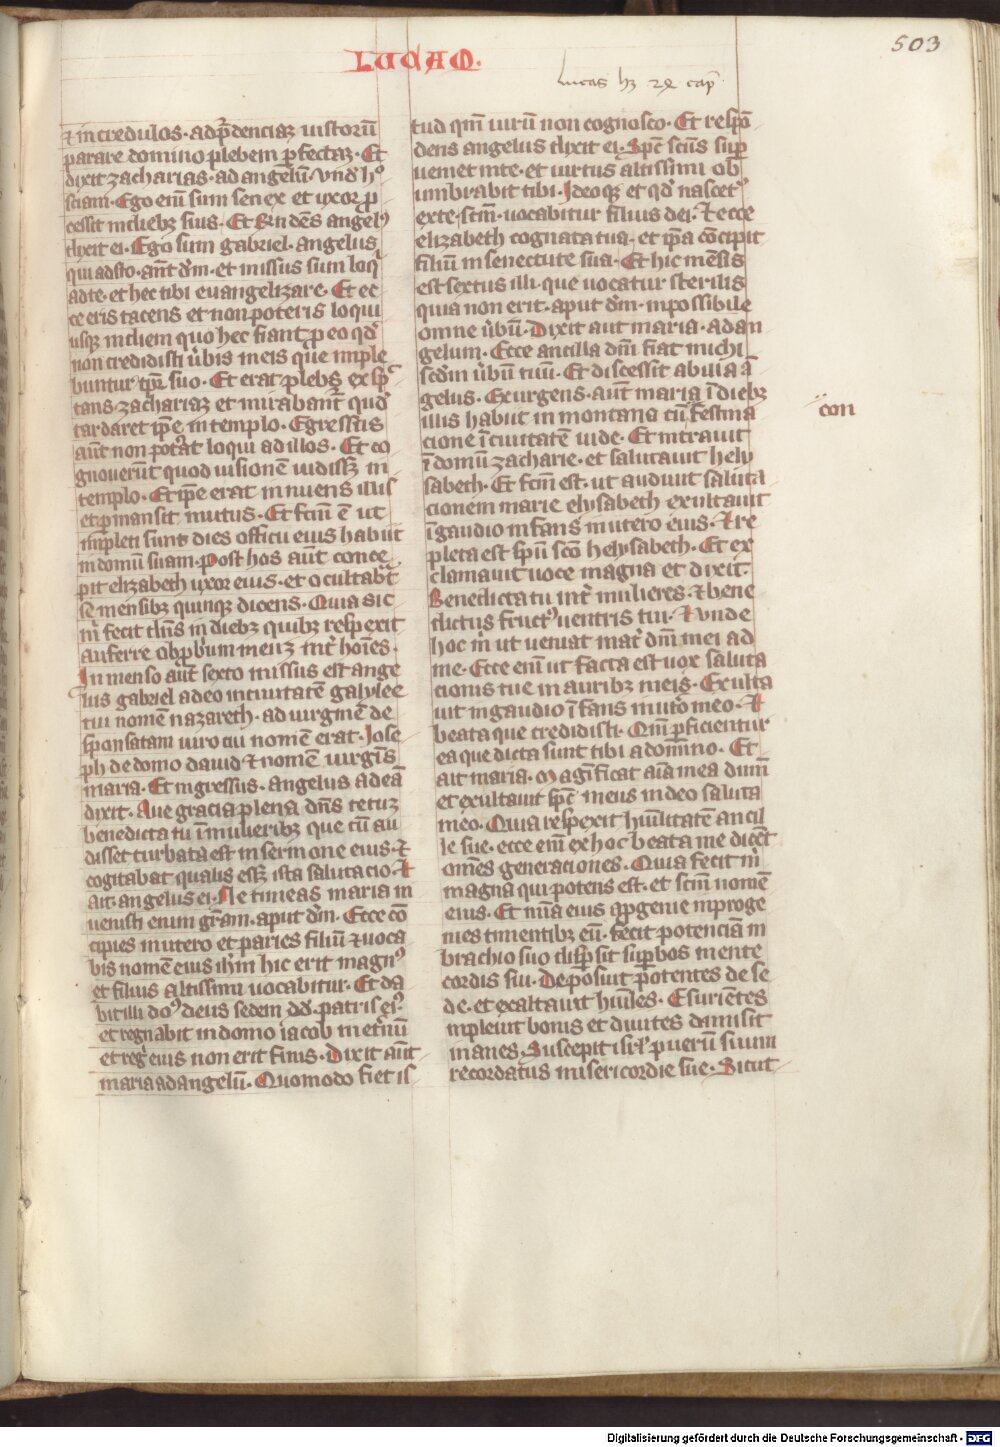 503
LUCAM.
lucas hꝫ 24 cap̄
⁊ incredulos. ad pͬdenciaꝫ iustorū
parare domino plebem ꝑfectaꝫ. Et
dixit zacharias. ad angelū. Vndͤ h°
sciam. Ego eni͂ sum senex et uxor p̄
cessit in diebꝫ suis. Et R̄ndēs angelꝰ
dixit ei. Ego sum gabriel. angelus
qui adsto. ant̄ dm̄. et missus sum loqͥ
ad te. et hec tibi euangelizare. Et ec
ce eris tacens et non poteris loqui
usqꝫ in diem quo hec fiant ꝓ eo qd̄
non credidisti ūbis meis que imple
buntur tp̄r suo. Et erat plebs exsp̄c
tans. zachariaꝫ et mirabant̄ quod
tardaret ip̄e in templo. Egressus
aūt non pot̄at loqui ad illos. Et co
gnouerūt quod uisionē uidissꝫ in
templo. Et ip̄e erat innuens illis
et ꝑmansit mutus. Et fcm̄ ē ut
impleti sunt dies officii eius habiit
in domū suam. Post hos aūt conce
pit elizabeth uxor eius. et occultab̄t
se mensibꝫ quinqꝫ dicens. Quia sic
m̄ fecit dn̄s in diebꝫ quibꝫ respexit
auferre obꝓbͥum meuꝫ int̄ hoīes.
In menso aūt sexto missus est ange
lus gabriel a deo in ciuitatē galylee
cui nomē nazareth. ad uirginē de
sponsatam uiro cui nomē erat. Jose
ph de domo dauid ⁊ nomē uirgīs
maria. Et ingressus. angelus ad eā
dixit. Aue gracia plena dn̄s tecuꝫ
benedicta tu ī mulieribꝫ que cū au
disset turbata est in sermone eius. ⁊
cogitabat qualis essꝫ ista salutacio. Et
ait. angelus ei. Ne timeas maria in
uenisti enim grām. aput dm̄. Ecce cō
cipies in utero et paries filiū ⁊ uoca
bis nomē eius ihm̄ hic erit magnꝰ
et filius altissimi uocabitur. Et da
bit illi doꝰ deus sedem dd̄. patris eiꝰ
et regnabit in domo iacob in et̄nū
et reg̊ eius non erit finis. Dixit aūt
maria ad angelū. Quomodo fiet is
tud qm̄ uirū non cognosco. Et respō
dens angelus dixit ei. Spc̄ scūs suꝑ
ueniet in te. et uirtus altissimi ob
umbrabit tibi. Ideoqꝫ et qd̄ nascetᷣ
ex te. scm̄. uocabitur filius dei. ⁊ ecce
elizabeth cognata tua. et ip̄a cōcipit
filiū in senectute sua. Et hic mēsis
est sextus illi. que uocatur sterilis
quia non erit. aput dm̄. inpossibile
omne ūbū. Dixit aut maria. ad an
gelum. Ecce ancilla dm̄ fiat michi
scdm̄ ūbū tuū. Et discessit ab illa ā
gelus. Exurgens. aūt maria ī diebꝫ
illis habiit in montana cū festina
cione ī ciuitatē iude. Et intrauit
ī domū zacharie. et salutauit hely
sabeth. Et fcm̄ est. ut audiuit saluta
cionem marie elysabeth exultauit
ī gaudio infans in utero eius. ⁊ re
pleta est sp̄u scō helysabeth. Et ex
clamauit uoce magna et dixit.
Benedicta tu int̄ mulieres. ⁊ bene
dictus fructꝰ uentris tui. Et vnde
hoc m̄ ut ueniat mat̄ dm̄ mei ad
me. Ecce eni͂ ut facta est uox saluta
cionis tue in auribꝫ meis. Exulta
uit in gaudio īfans in ut̄o meo. Et
beata que credidisti. Qm̄ ꝑficientur
ea que dicta sunt tibi a domino. Et
ait maria. Magnificat aīa mea dnm̄
et exultauit spc̄ meus in deo saluta
meo. Quia respexit hūilitatē ancil
le sue. ecce eni͂ ex hoc beata me dicēt
omēs generaciones. Quia fecit m̄
magna qui potens est. et scm̄ nomē
eius. Et mīa eius a ꝓgenie in proge
nies timentibꝫ eū. fecit potenciā in
brachio suo dispͬsit suꝑbos mente
cordis sui. Deposuit potentes de se
de. et exaltauit hūiles. Esuriētes
inpleuit bonis et diuites dimisit
inanes. Suscepit isrl̄ puerū suum
recordatus misericordie sue. Sicut
con
Digitalisierung gefördert durch die Deutsche Forschungsgemeinschaft - DFG